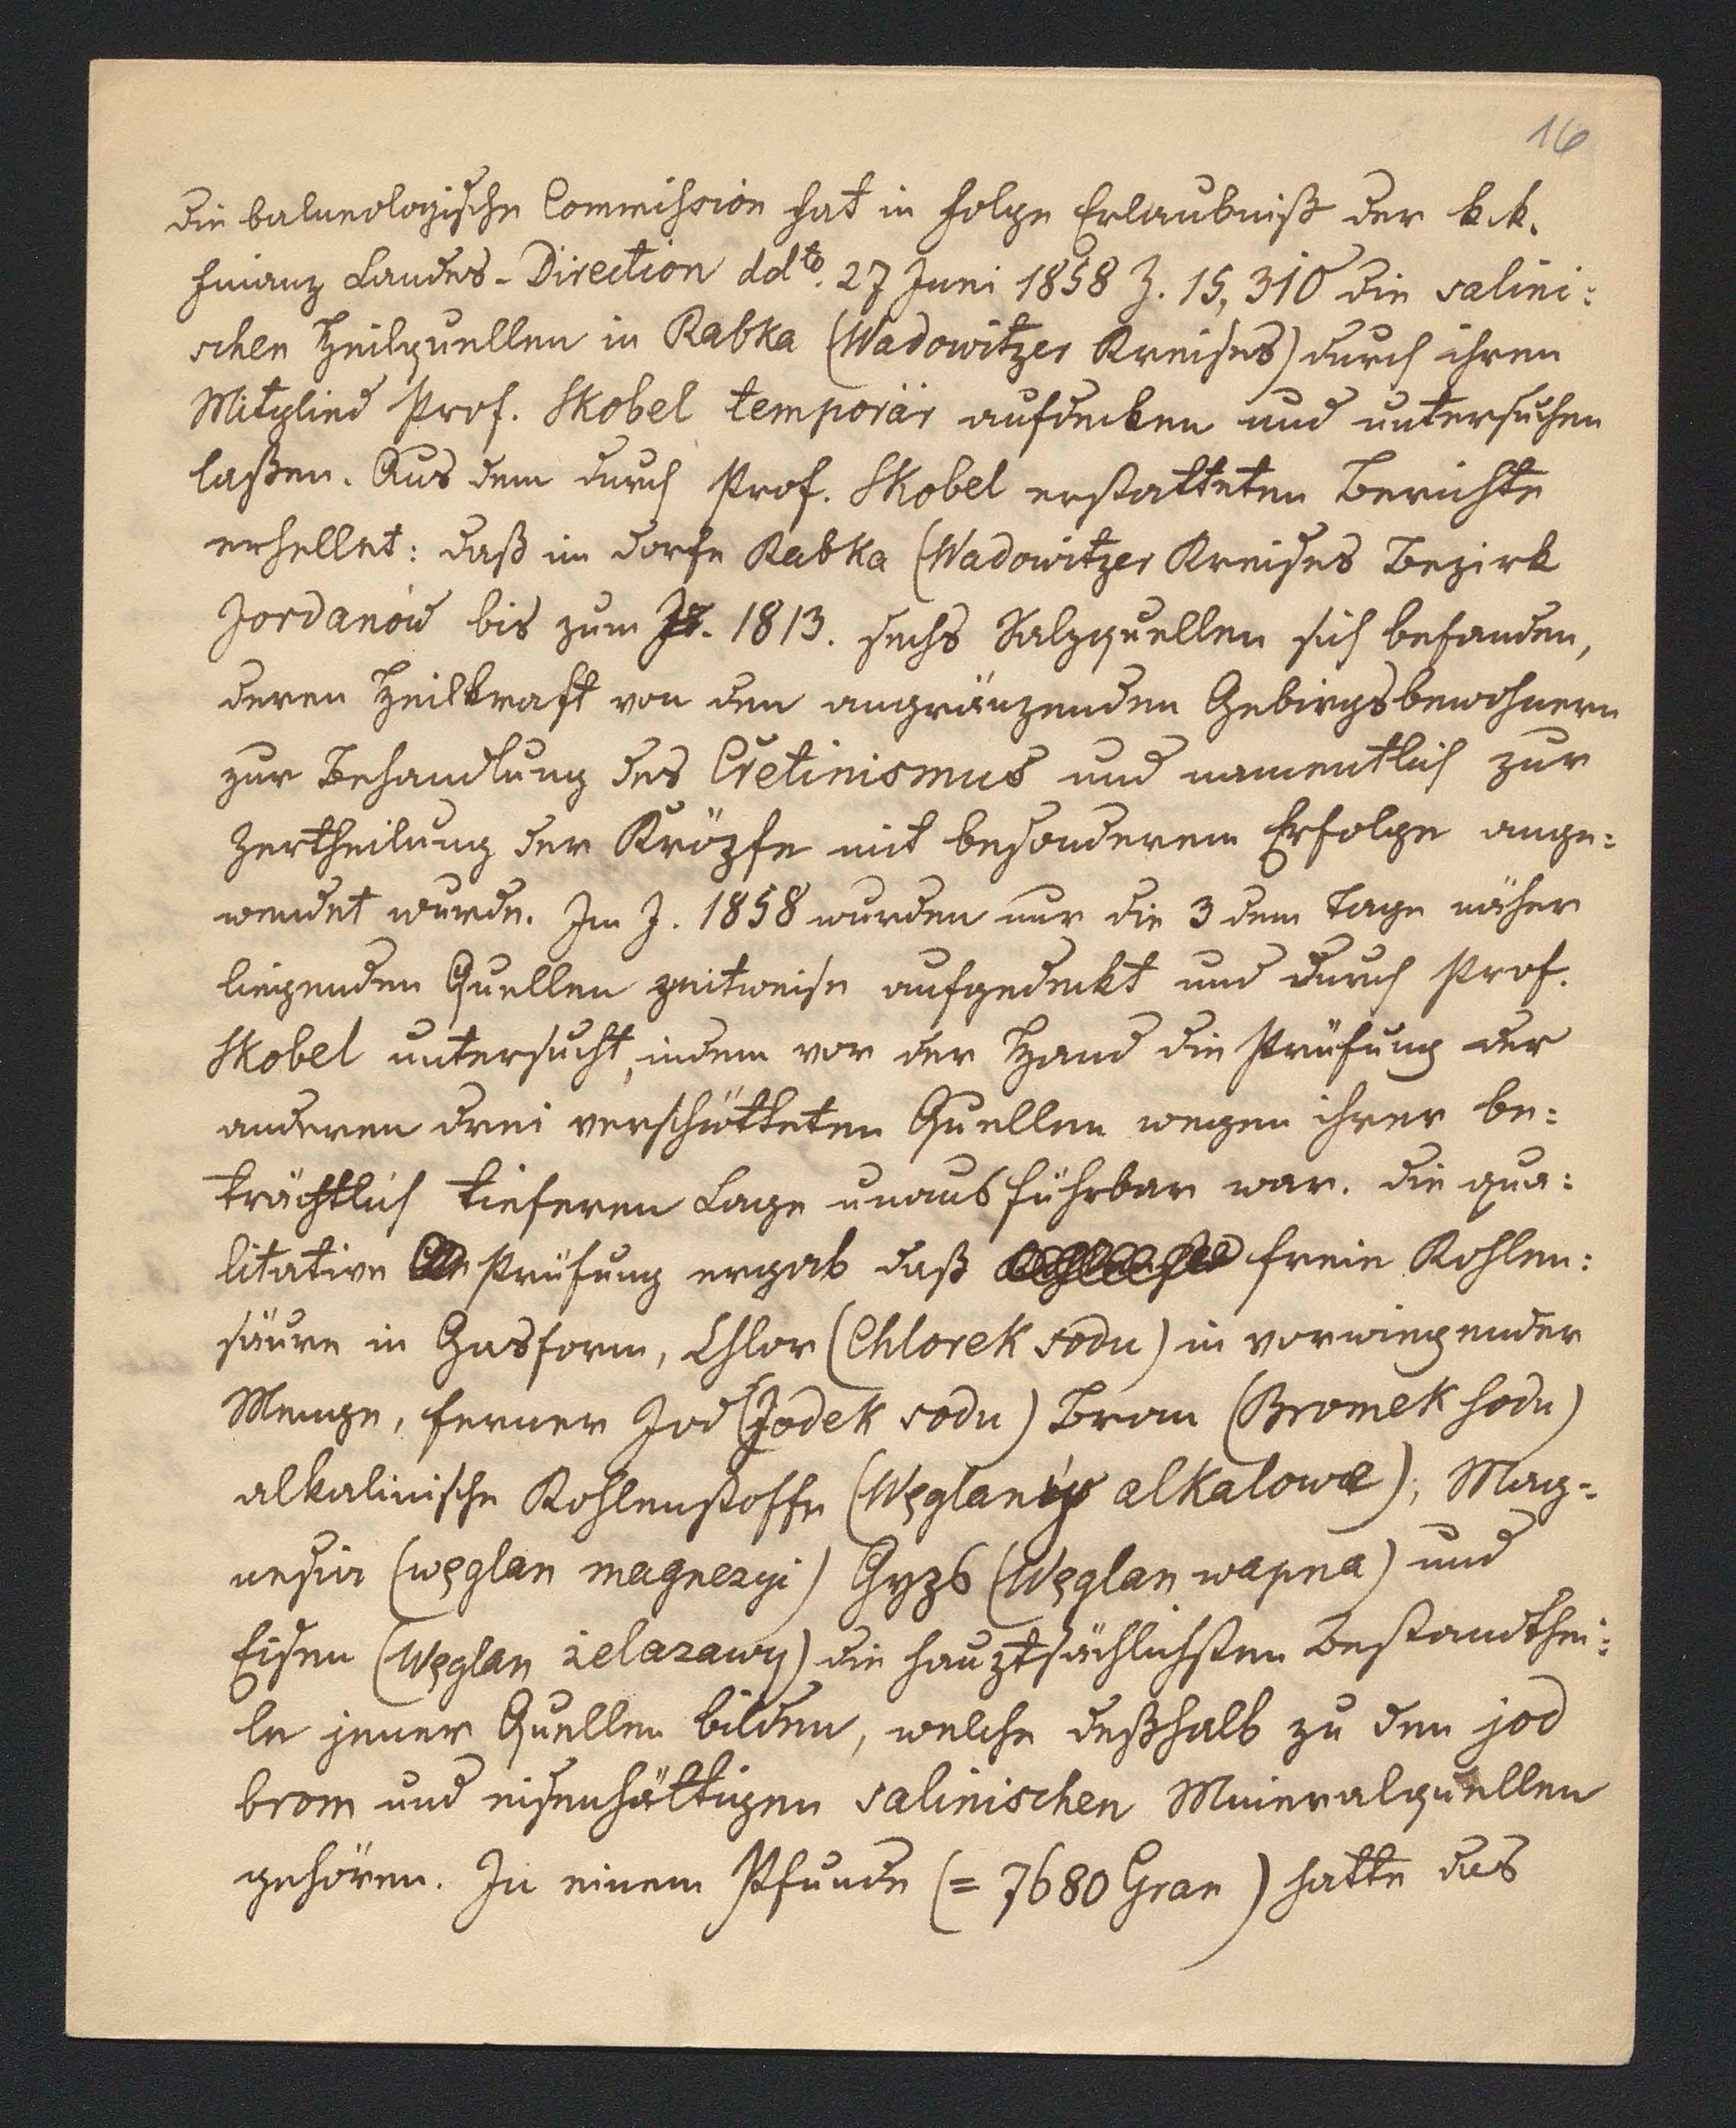 16
Die balneologische Commission hat in Folge Erlaubniß der k.k.
Finanz Landes-Direction ddto. 27 Juni 1858 Z. 15,310 die salini:
schen Heilquellen in Rabka (Wadowitzer Kreises) durch ihren
Mitglied Prof. Skobel temporär aufdecken und untersuchen
laßen. Aus dem durch Prof. Skobel erstatteten Berichte
erhellet: daß im Dorfe Rabka (Wadowitzer Kreises Bezirk
Jordanów bis zum J. 1813. sechs Salzquellen sich befanden,
deren Heilkraft von den angränzenden Gebirgsbewohnern
zur Behandlung des Cretinismus und namentlich zur
Zertheilung der Kröpfe mit besonderem Erfolge ange:
wendet wurde. Im J. 1858 wurden nur die 3 dem Tage näher
liegenden Quellen zeitweise aufgedeckt und durch Prof.
Skobel untersucht, indem vor der Hand die Prüfung der
anderen drei verschütteten Quellen wegen ihrer be:
trächtlich tieferen Lage unausführbar war. Die qua:
litative Prüfung ergab daß freie Kohlen:
säure in Gasform, Chlor (Chlorek sodu) in vorwiegender
Menge, ferner Jod (Jodek sodu) Brom (Bromek sodu)
alkalinische Kohlenstoffe (Węglany alkalowe), Mag-
nesia (węglan magnezyi) Gyps (Węglan wapna) und
Eisen (Węglan żelazawy) die hauptsächlichsten Bestandthei:
le jener Quellen bilden, welche deßhalb zu den jod
brom und eisenhältigen salinischen Mineralquellen
gehören. In einem Pfunde (= 7680 Gran) hatte das